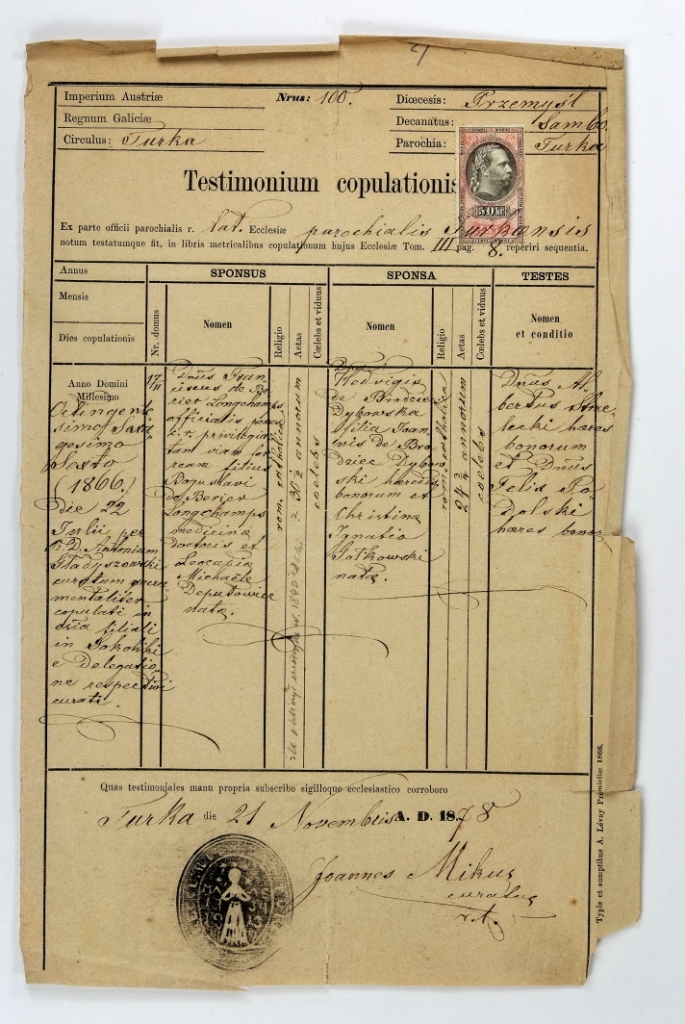 Imperium Austriæ
Nrus: 100.
Diœcesis: Przemyśl
Regnum Galiciæ
Decanatus: Sambo.
Circulus: Turka
Parochia: Turka
Testimonium copulationis
50 Kr
Ex parte officii parochialis r. lat. Ecclesiæ parochialis Turkensis
notum testatumque fit, in libris metricalibus copulationum hujus Ecclesiæ Tom. III pag. 8. reperiri sequentia.
Annus
Mensis
Dies copulationis
Nr. domus
SPONSUS
Nomen
Religio
Aetas
Cœlebs et viduus
SPONSA
Nomen
Religio
Aetas
Cœlebs et viduus
TESTES
Nomen
et conditio
Anno Domini
Millesimo
Octingente
simo Sexa
gesimo
Sexto
(1866.)
Die 22
Julii per
R. D. Antonium
Gładyszowski
curatum
mentaliter
copulati in
filiali
in
e Delegatio
ne respectivi
curati.
17/II
Dnus Fran
ciscus de Be
rier Longchamps
officialis
privilegia
tam viam fer
ream filius
Boguslavi
de Berier
Longchamps
medicinæ
doctoris et
Leocadia
Michaële
Deputowicz
natæ.
rom. catholica
30 ½ annorum
coelebs
Hedvigis
de Brodziec
Dybowska
filia Joan
nis de Bro
dziec Dybow
ski hæredis
bonorum et
Christina
Ignatio
Jatkowski
natæ.
rom. catholica
24 ½ annorum
coelebs
Dnus Al
bertus Strze
lecki hæres
bonorum
et Dnus
Felix Po
dolski
hæres bonor
Quas testimoniales manu propria subscribo sigilloque ecclesiastico corroboro
Turka die 21 Novembris A. D. 1878
Joannes Mikus
curatus
r. l.
Typis et sumptibus A. Lévay Premisliæ 1866.